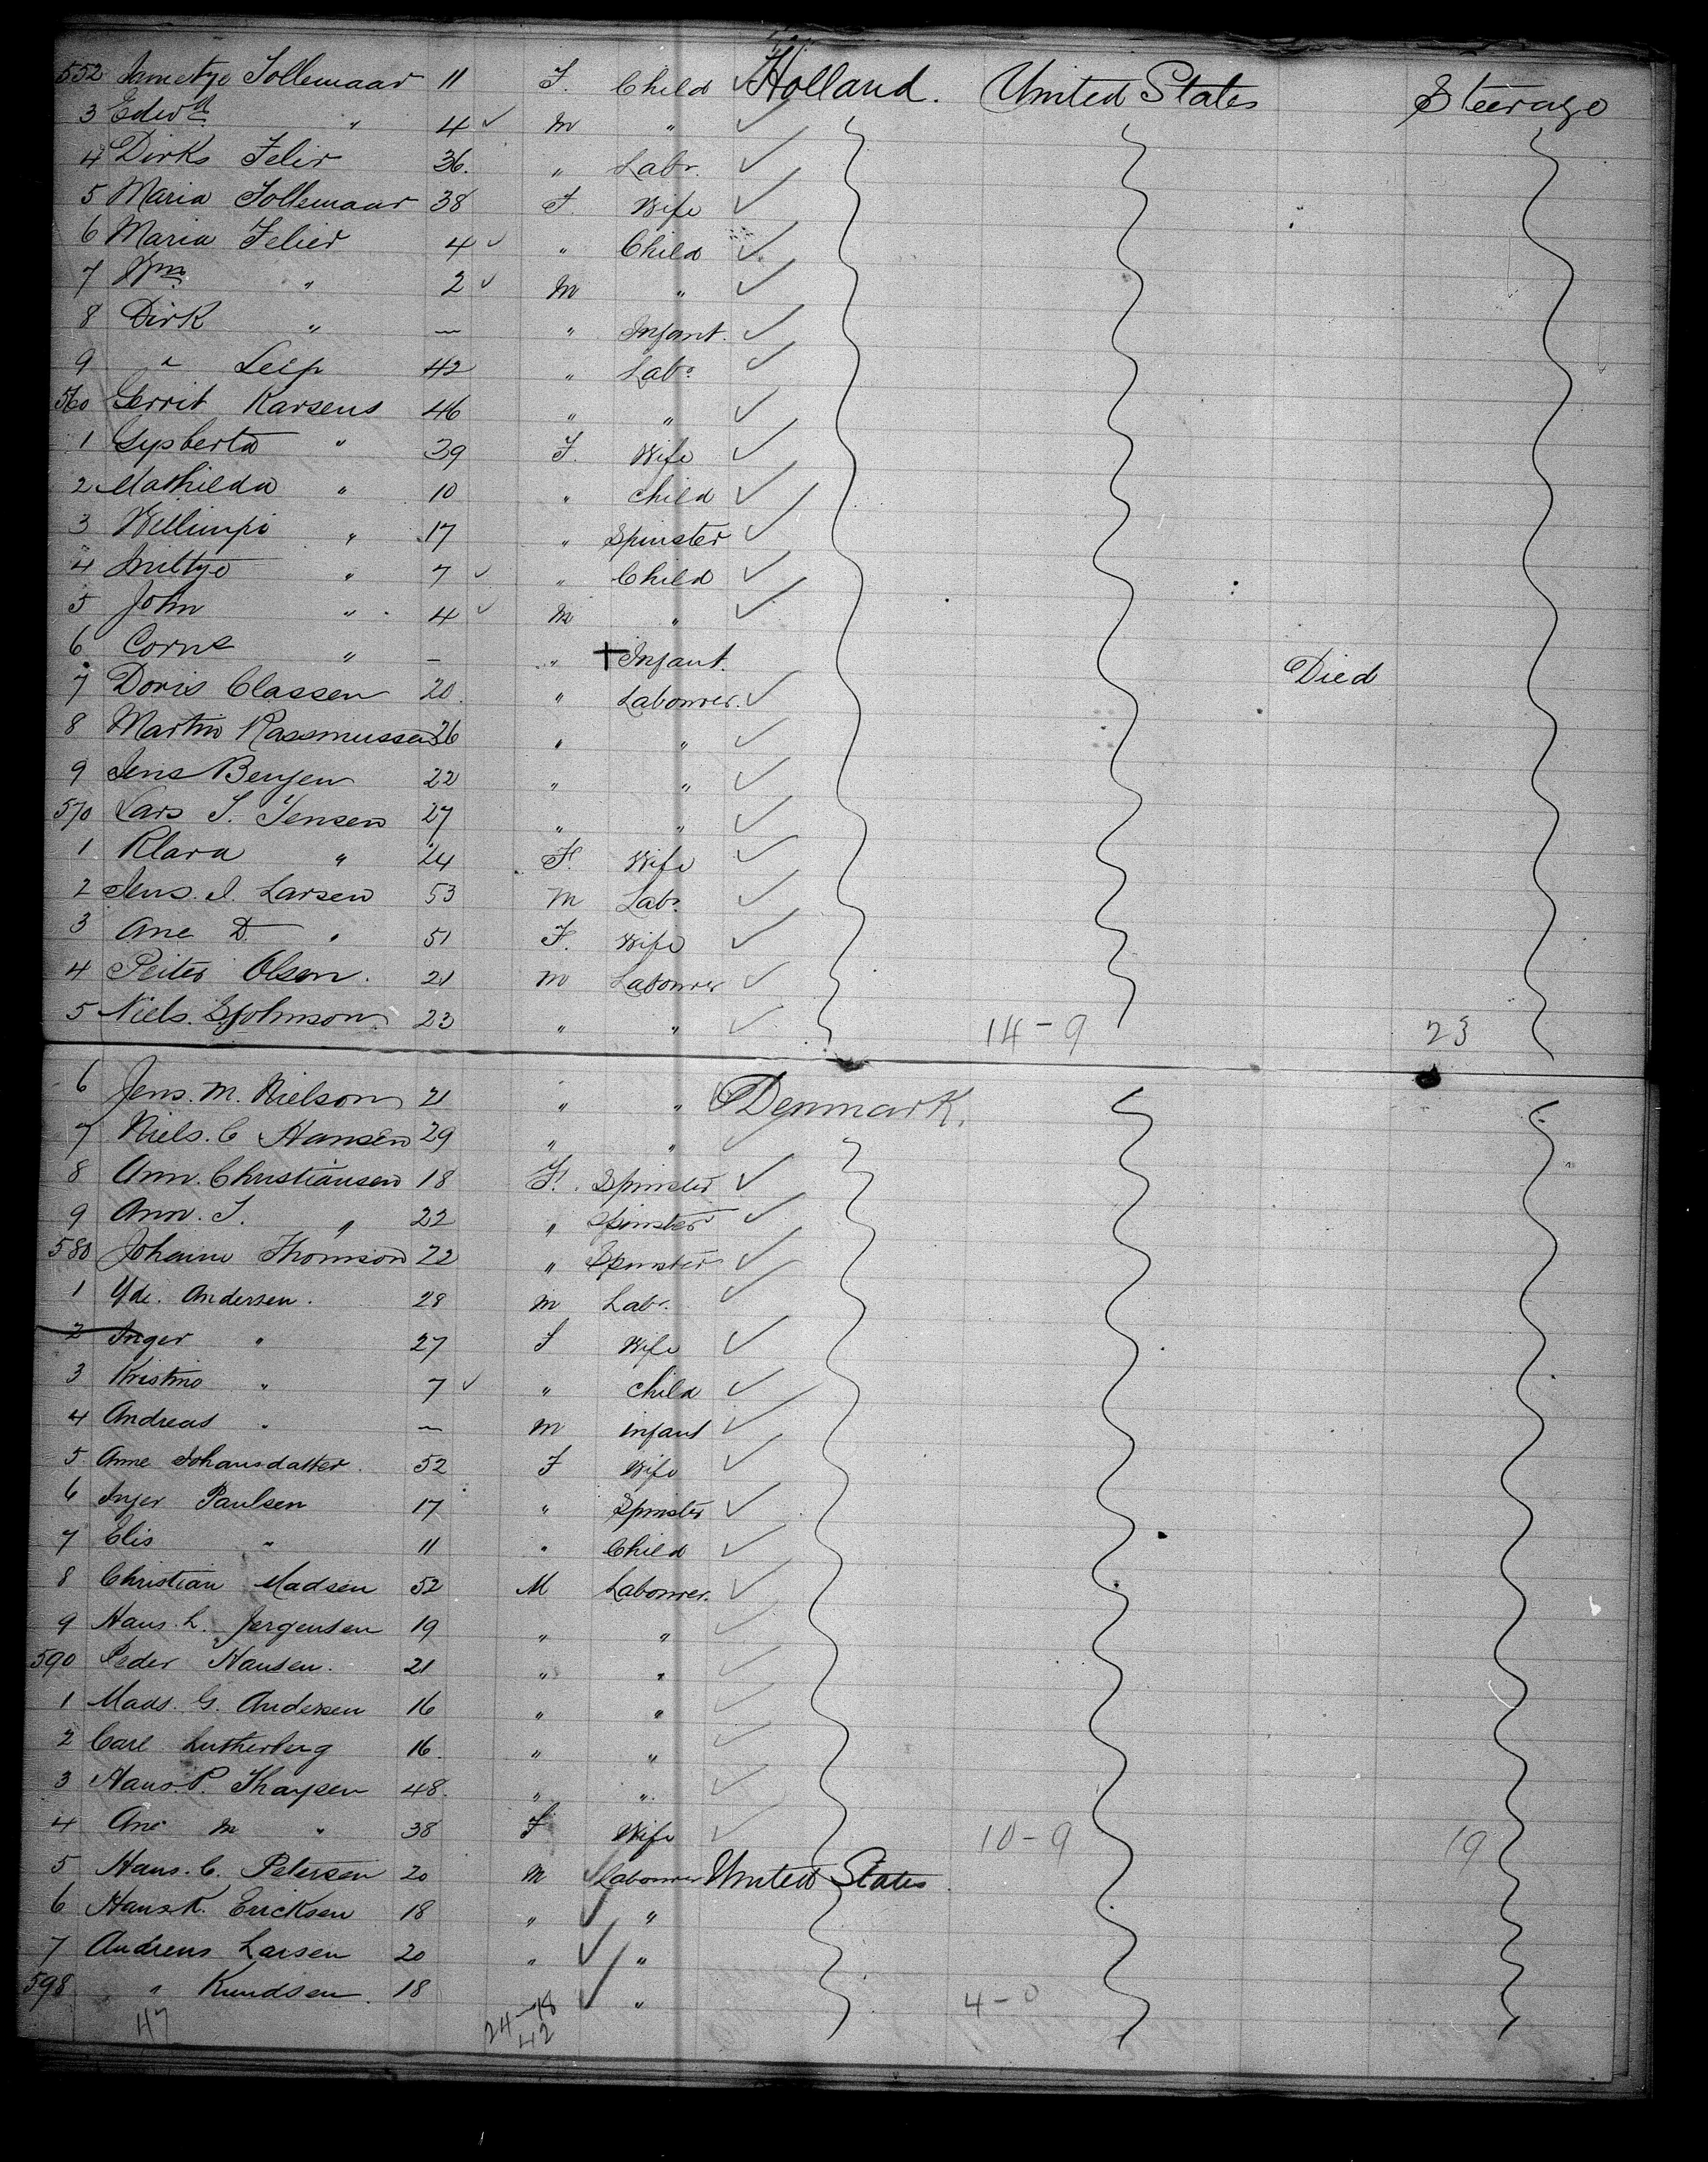 552 Jametye Tollemaar 11 F. Child Holland. United States Steerage
3 Edwd " 4 M "
4 Dirks Felir 36. " Labr.
5 Maria Tollemaar 38 F. Wife
6 Maria Felier 4 " Child
7 Wm " 2 M "
8 Dirk " — " Infant.
9 " Leep 42 " Labr
560 Gerrit Karsens 46 " "
1 Gysberta " 39 F. Wife
2 Mathilda " 10 " Child
3 " 17 " Spinster
4 " 7 " Child
5 John " 4 M "
6 Corns " — " Infant. Died
7 Doris Classen 20. " Labourer.
8 Martin Rassmussen 26 " "
9 Jens Benjen 22 " "
570 Lars J. Jensen 27 " "
1 Klara " 24 F. Wife
2 Jens. J. Larsen 53 M Labr.
3 Ane D. " 51 F. Wife
4 Peiter Olsen. 21 M Labourer
5 Niels. S Johnson 23 " " 14-9 23
6 Jens. M. Nielson 21 " " Denmark.
7 Niels. C Hansen 29 " "
8 Ann. Christiansen 18 F. Spinster
9 Ann. J. " 22 " Spinster
580 Johanne Thomson 22 " Spinster
1 Yde. Andersen. 28 M Labr.
2 Inger " 27 F Wife
3 Kristine " 7 " Child
4 Andreas " — M infant
5 Anne Johansdatter. 52 F Wife
6 Inger Paulsen 17 " Spinster
7 Elis " 11 " Child
8 Christian Madsen 52 M Labourer.
9 Hans. L. Jergensen 19 " "
590 Peder Hansen. 21 " "
1 Mads. G. Andersen 16 " "
2 Carl Lutherberg 16. " "
3 Hans. P. Thaysen 48. " "
4 Ane M " 38 F Wife 10-9 19
5 Hans. C. Petersen 20 M Labourer United States
6 Hans K. Ericksen 18 " "
7 Andreas Larsen 20 " "
598 " Kundsen. 18 " " 4-0
47 24-18
42